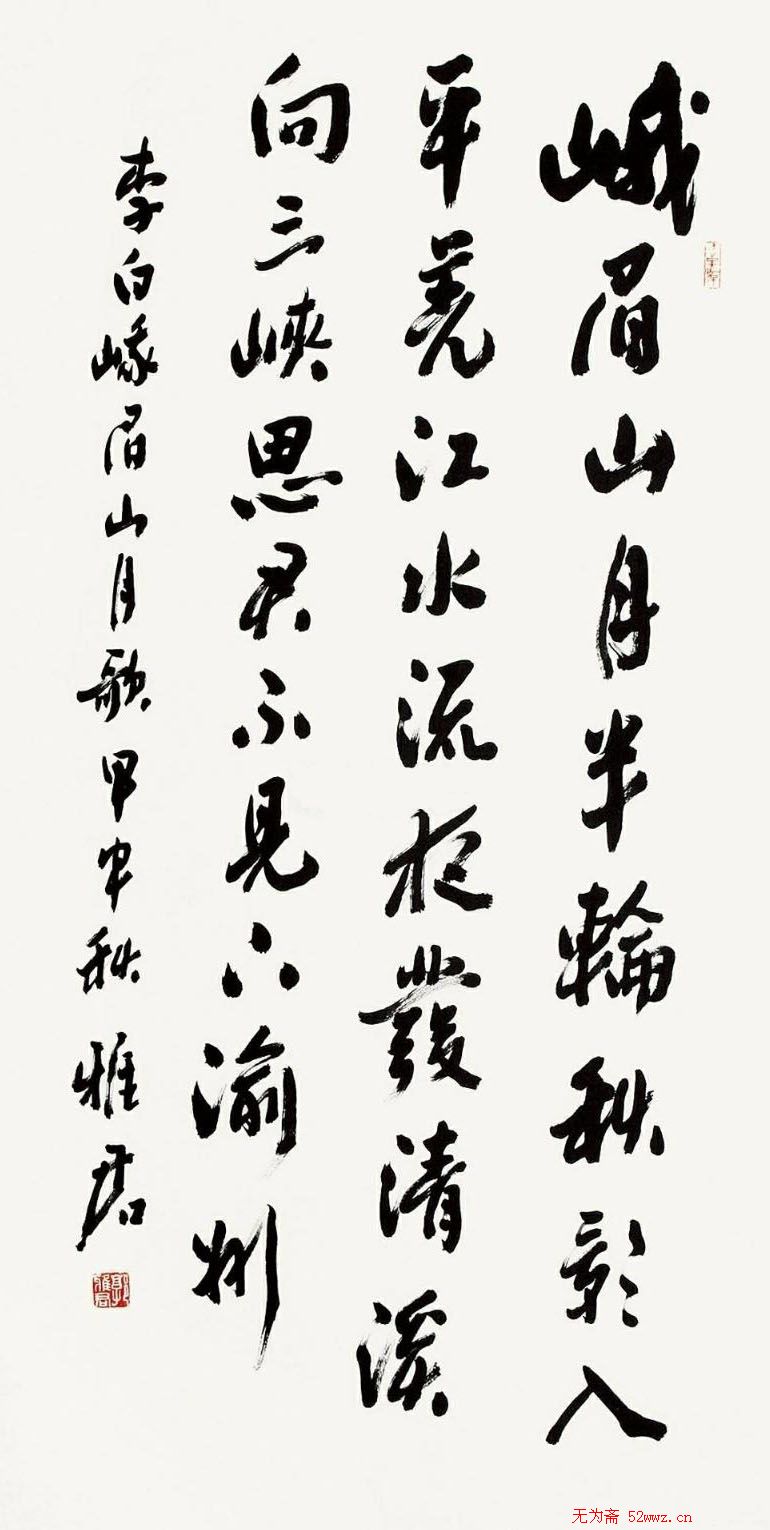 峨眉山月半輪秋影入
平羌江水流夜發清溪
向三峽思君不見下渝州
李白峨眉山月歌甲申秋雅君
郭雅君
无为斋 52wwz.cn